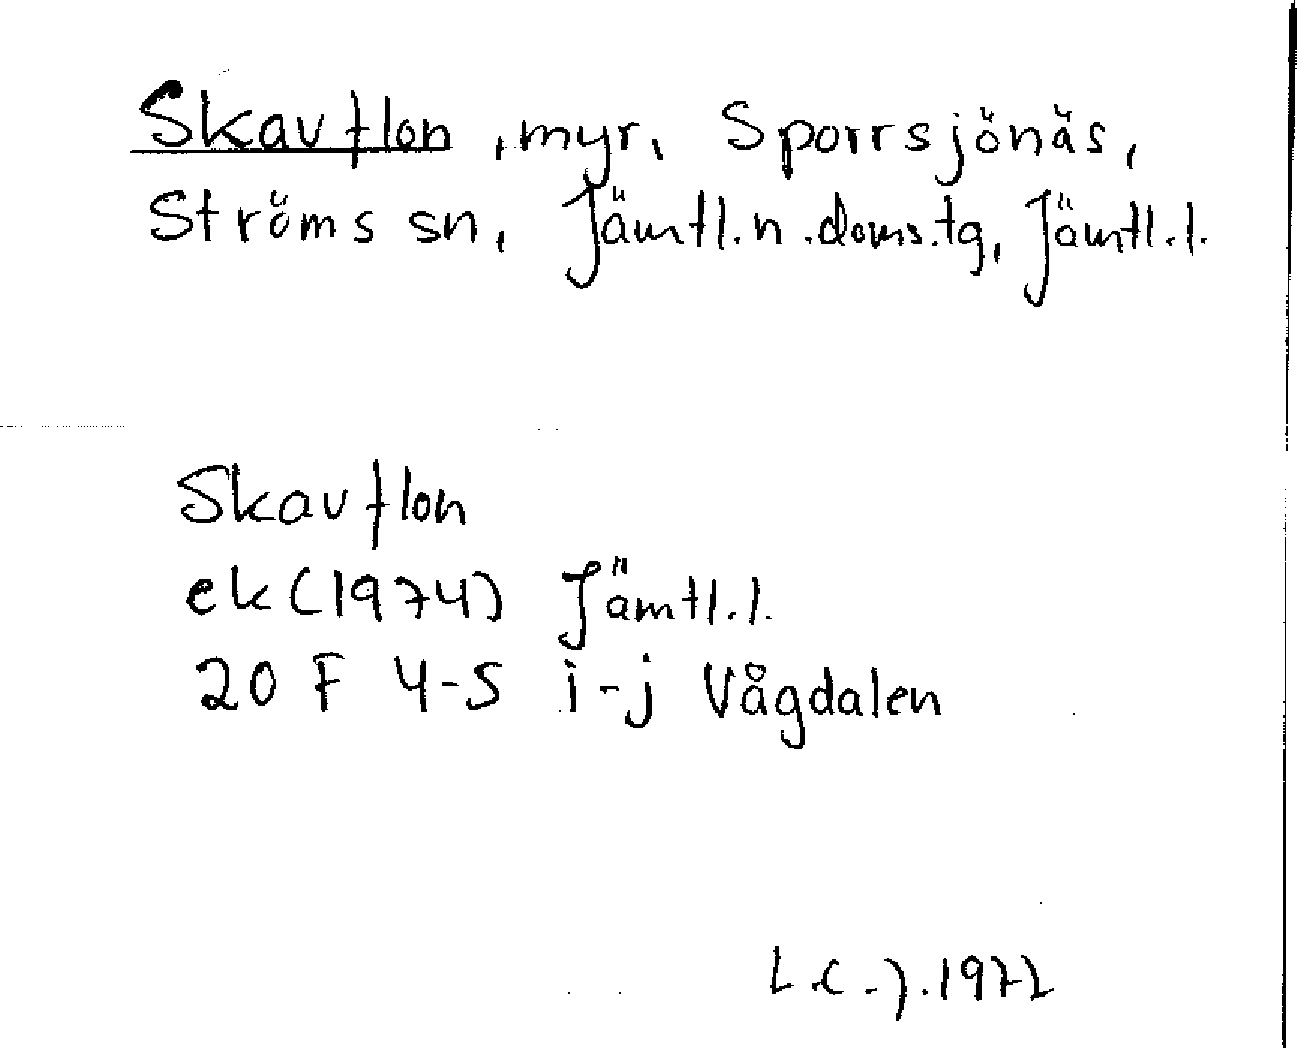 Skavflon, myr, Sporrsjönäs,
Ströms sn, Jämtl.n.doms.tg, Jämtl.l.
Skavflon
ek(1974) Jämtl.l.
20 F 4-5 i-j Vågdalen